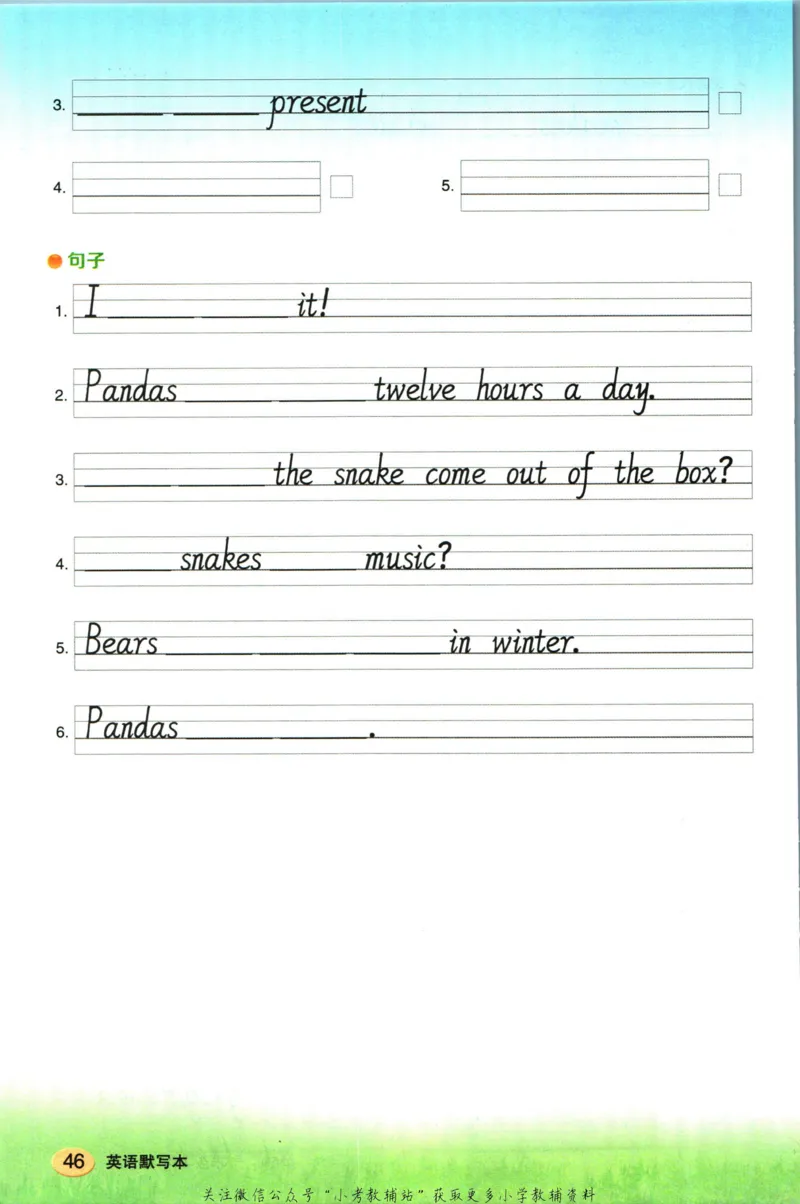 3. ____ ____ present
4.
5.
句子
1. I ____ ____ it!
2. Pandas ____ ____ twelve hours a day.
3. ____ ____ the snake come out of the box?
4. ____ snakes ____ music?
5. Bears ____ ____ ____ in winter.
6. Pandas ____ ____.
46 英语默写本
关注微信公众号“小考教辅站”获取更多小学教辅资料